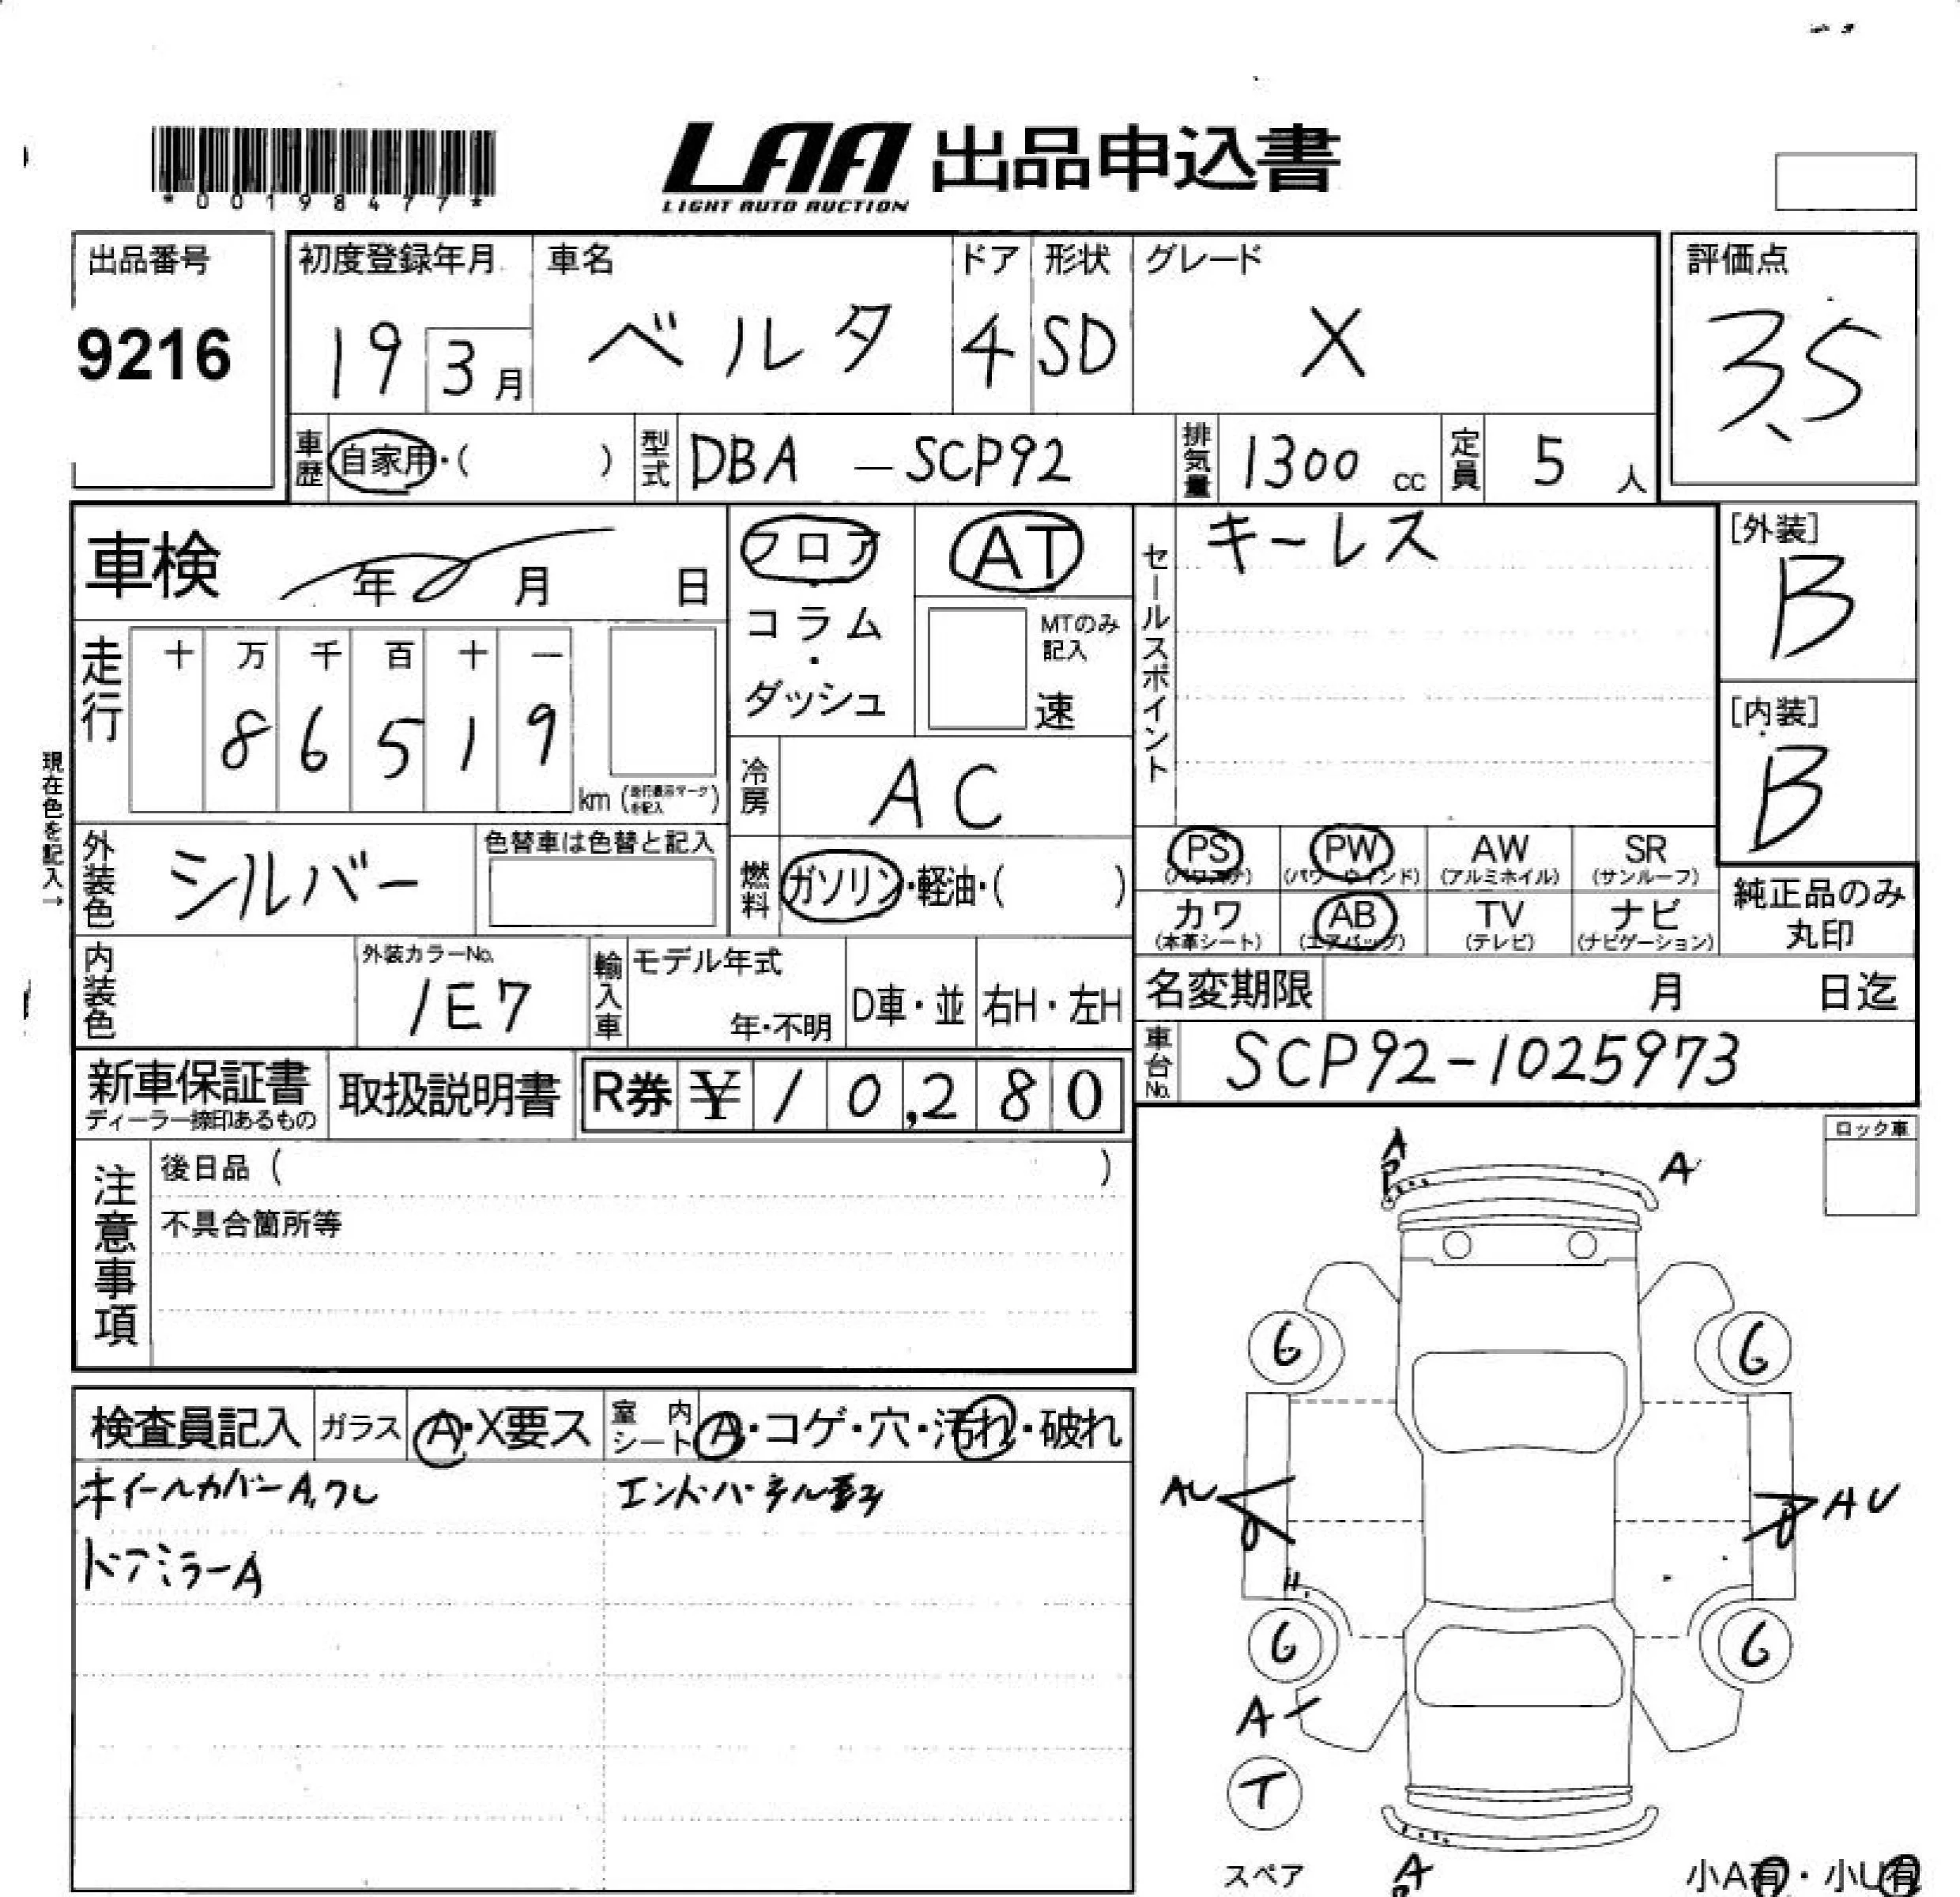 *00198477*
LAA 出品申込書
LIGHT AUTO AUCTION
出品番号
9216
初度登録年月 車名 ドア 形状 グレード
19 3月 ベルタ 4 SD X
評価点
3.5
車歴 自家用・( ) 型式 DBA -SCP92 排気量 1300 cc 定員 5 人
車検 年 月 日
フロア・コラム・ダッシュ
AT
MTのみ記入
速
セールスポイント
キーレス
[外装]
B
[内装]
B
走行 十 万 千 百 十 一
8 6 5 1 9
km (走行表示マークを記入)
現在色を記入→
冷房 AC
外装色 シルバー
色替車は色替と記入
燃料 ガソリン・軽油・( )
PS (パワステ) PW (パワーウインド) AW (アルミホイル) SR (サンルーフ)
カワ (本革シート) AB (エアバッグ) TV (テレビ) ナビ (ナビゲーション)
純正品のみ
丸印
内装色
外装カラーNo.
1E7
輸入車 モデル年式
年・不明 D車・並 右H・左H
名変期限 月 日迄
車台No. SCP92-1025973
新車保証書
ディーラー捺印あるもの
取扱説明書
R券 ¥ 10,280
注意事項
後日品 ( )
不具合箇所等
ロック車
検査員記入 ガラス A・X要ス 室内シート A・コゲ・穴・汚れ・破れ
ホイールカバーA,ワレ
ドアミラーA
A
P
A
6 6
AU AU
6 6
A
T
スペア
A
小A有・小U有